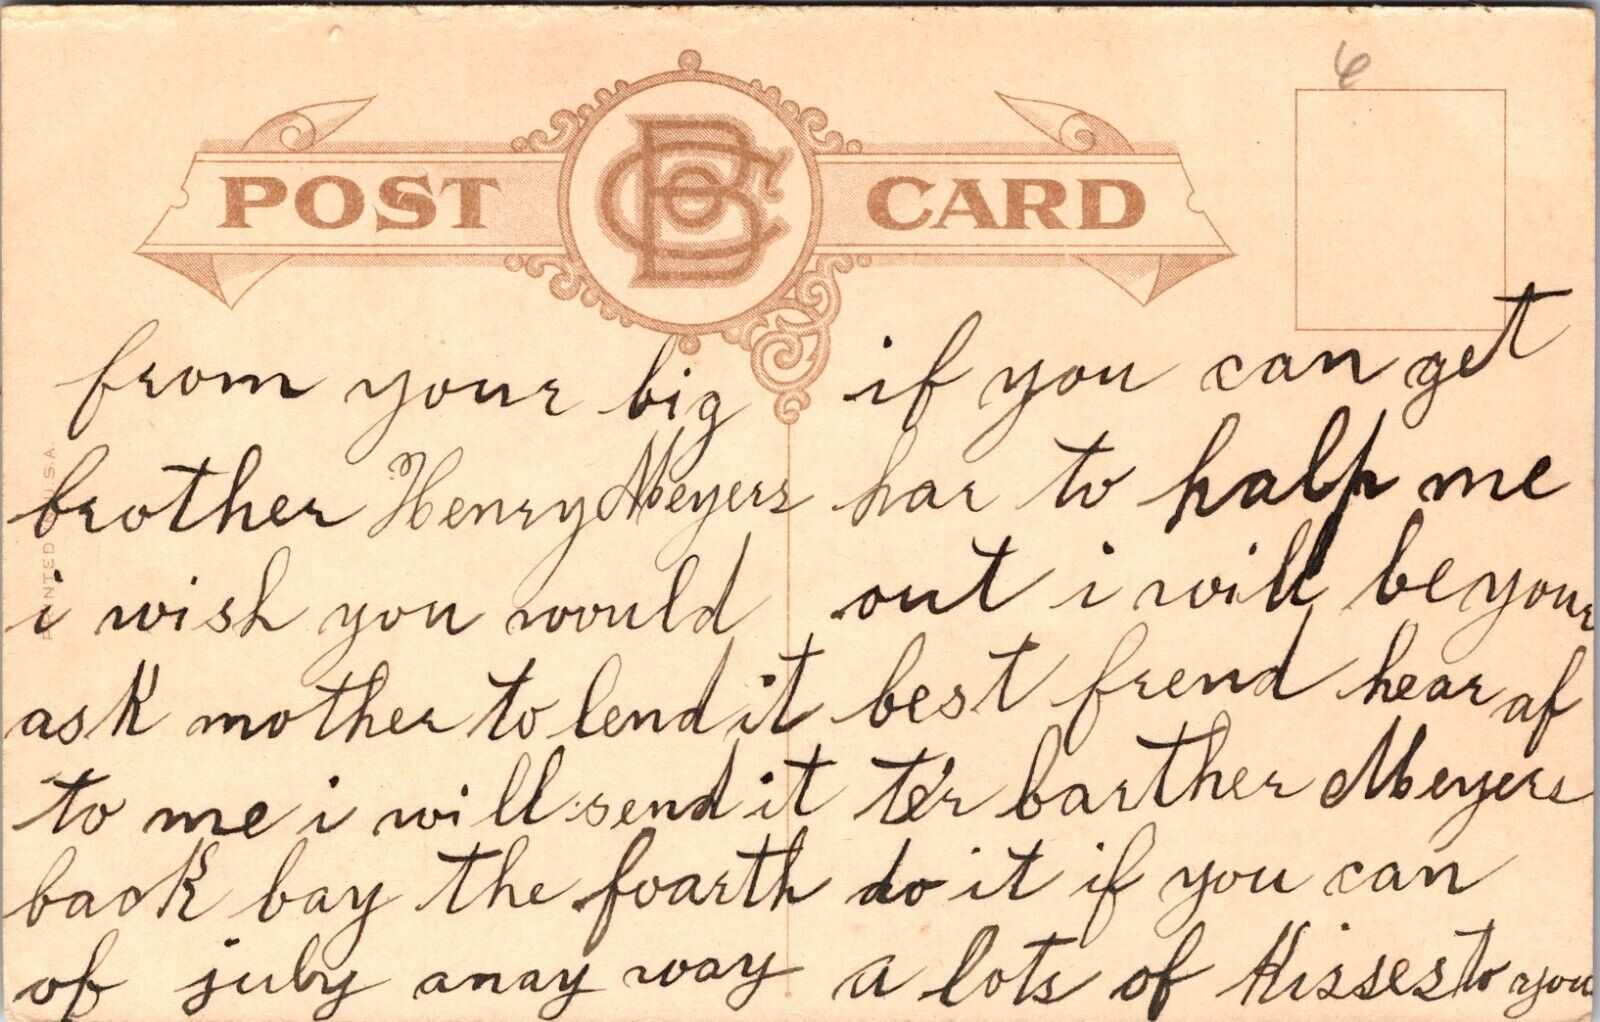 6
POST CARD
PRINTED U.S.A.
from your big
brother Henry Meyers
i wish you would
ask mother to lend it
to me i will send it
back bay the foarth
of july anay way
if you can get
har to halp me
out i will be your
best frend hear af
ter barther Meyers
do it if you can
a lots of Kisses to you